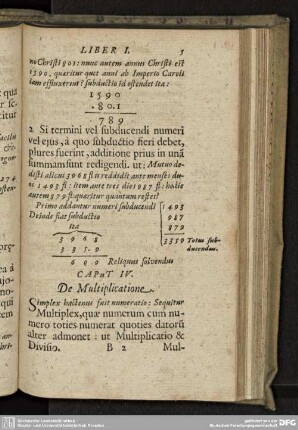 LIBER I. 5
no Christi 801: nunc autem annus Christi est
1590, quæritur quot anni ab Imperio Caroli
iam effluxerint? subductio id ostendet ita:
1590
801
789
2 Si termini vel subducendi numeri
vel ejus, à quo subductio fieri debet,
plures fuerint, additione prius in unã
summam sunt redigendi. ut: Mutuo de-
disti alicui 3968 fl: reddidit ante menses du-
os 1493 fl: item ante tres dies 987 fl: hodie
autem 879 fl quæritur quantum restet?
Primo addantur numeri subducendi 1493
Deinde fiat subductio 987
ita 879
3968 3359 Totus sub-
3359 ducendus.
609 Reliquus solvendus
CAPUT IV.
De Multiplicatione.
Simplex hactenus fuit numeratio: Sequitur
Multiplex, quæ numerum cum nu-
mero toties numerat quoties datorũ
alter admonet: ut Multiplicatio &
Divisio. B 2 Mul-